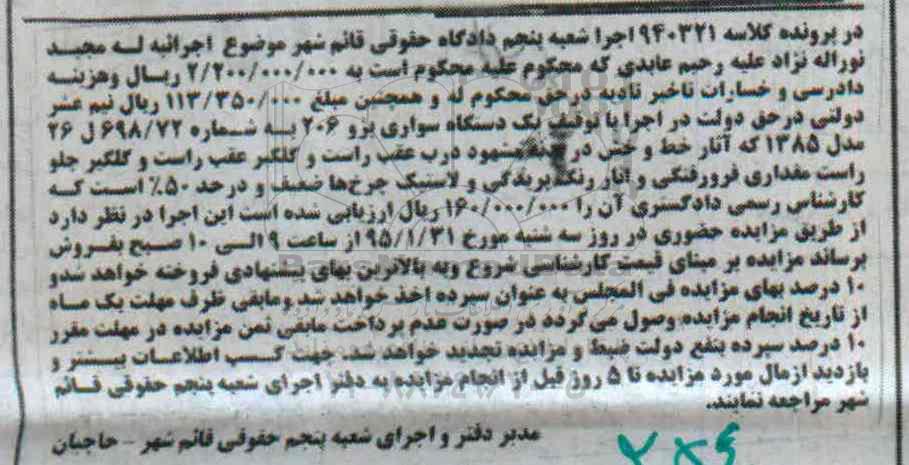 در پرونده کلاسه ۹۴۰۳۲۱ اجرا شعبه پنجم دادگاه حقوقی قائم شهر موضوع اجرائیه له مجید
نوراله نژاد علیه رحیم عابدی که محکوم علیه محکوم است به ۲/۲۰۰/۰۰۰/۰۰۰ ریال وهزینه
دادرسی و خسارات تاخیر تادیه درحق محکوم له و همچنین مبلغ ۱۱۳/۳۵۰/۰۰۰ ریال نیم عشر
دولتی درحق دولت در اجرا با توقیف یک دستگاه سواری پژو ۲۰۶ به شماره ۶۹۸/۷۲ ل ۲۶
مدل ۱۳۸۵ که آثار خط و خش در بدنه مشهود درب عقب راست و گلگیر عقب راست و گلگیر جلو
راست مقداری فرورفتگی و آثار رنگ پریدگی و لاستیک چرخ‌ها ضعیف و در حد ۵۰٪ است که
کارشناس رسمی دادگستری آن را ۱۶۰/۰۰۰/۰۰۰ ریال ارزیابی شده است این اجرا در نظر دارد
از طریق مزایده حضوری در روز سه شنبه مورخ ۹۵/۱/۳۱ از ساعت ۹ الی ۱۰ صبح بفروش
برساند مزایده بر مبنای قیمت کارشناسی شروع وبه بالاترین بهای پیشنهادی فروخته خواهد شدو
۱۰ درصد بهای مزایده فی المجلس به عنوان سپرده اخذ خواهد شد ومابقی ظرف مهلت یک ماه
از تاریخ انجام مزایده وصول می گردد در صورت عدم پرداخت مابقی ثمن مزایده در مهلت مقرر
۱۰ درصد سپرده بنفع دولت ضبط و مزایده تجدید خواهد شد. جهت کسب اطلاعات بیشتر و
بازدید ازمال مورد مزایده تا ۵ روز قبل از انجام مزایده به دفتر اجرای شعبه پنجم حقوقی قائم
شهر مراجعه نمایند.
مدیر دفتر و اجرای شعبه پنجم حقوقی قائم شهر - حاجیان